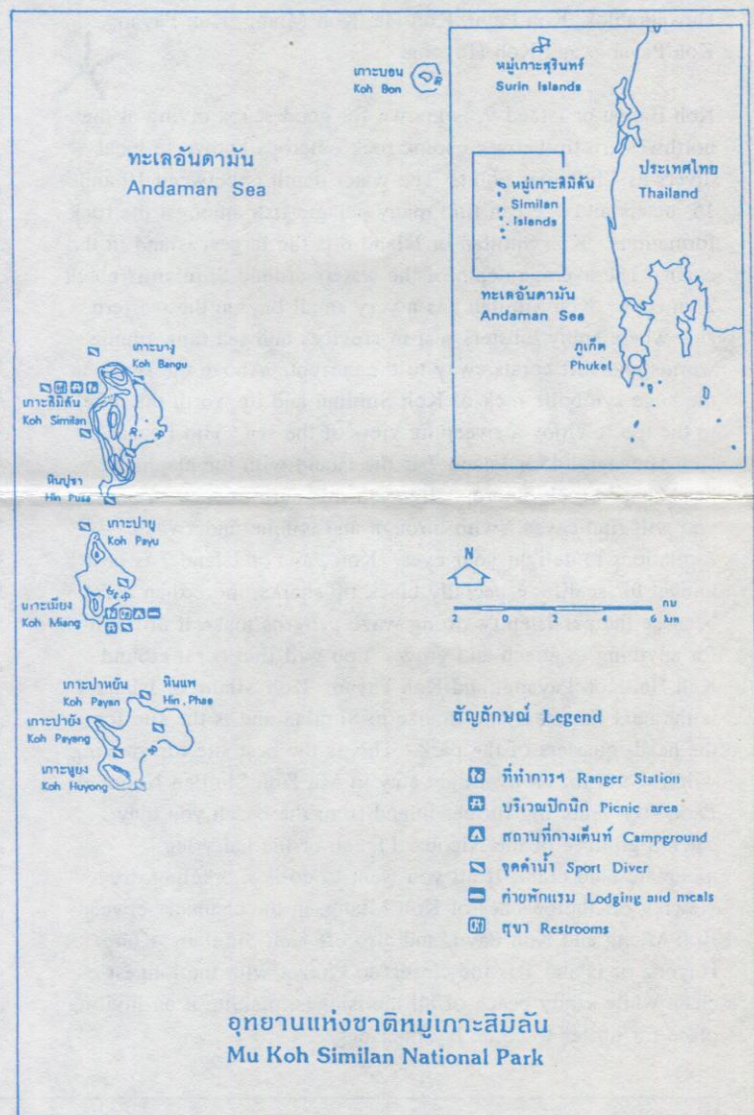 เกาะบอน
Koh Bon
หมู่เกาะสุรินทร์
Surin Islands
ทะเลอันดามัน
Andaman Sea
ประเทศไทย
Thailand
หมู่เกาะสิมิลัน
Similan
Islands
ทะเลอันดามัน
Andaman Sea
ภูเก็ต
Phuket
เกาะบางู
Koh Bangu
เกาะสิมิลัน
Koh Similan
หินปูซา
Hin Pusa
เกาะปายู
Koh Payu
เกาะเมียง
Koh Miang
เกาะปาหยัน
Koh Payan
หินแพ
Hin Phae
เกาะปายัง
Koh Payang
เกาะหูยง
Koh Huyong
N
กม
2 0 2 4 6 km
สัญลักษณ์ Legend
ที่ทำการฯ Ranger Station
บริเวณปิกนิก Picnic area
สถานที่กางเต็นท์ Campground
จุดดำน้ำ Sport Diver
ค่ายพักแรม Lodging and meals
สุขา Restrooms
อุทยานแห่งชาติหมู่เกาะสิมิลัน
Mu Koh Similan National Park